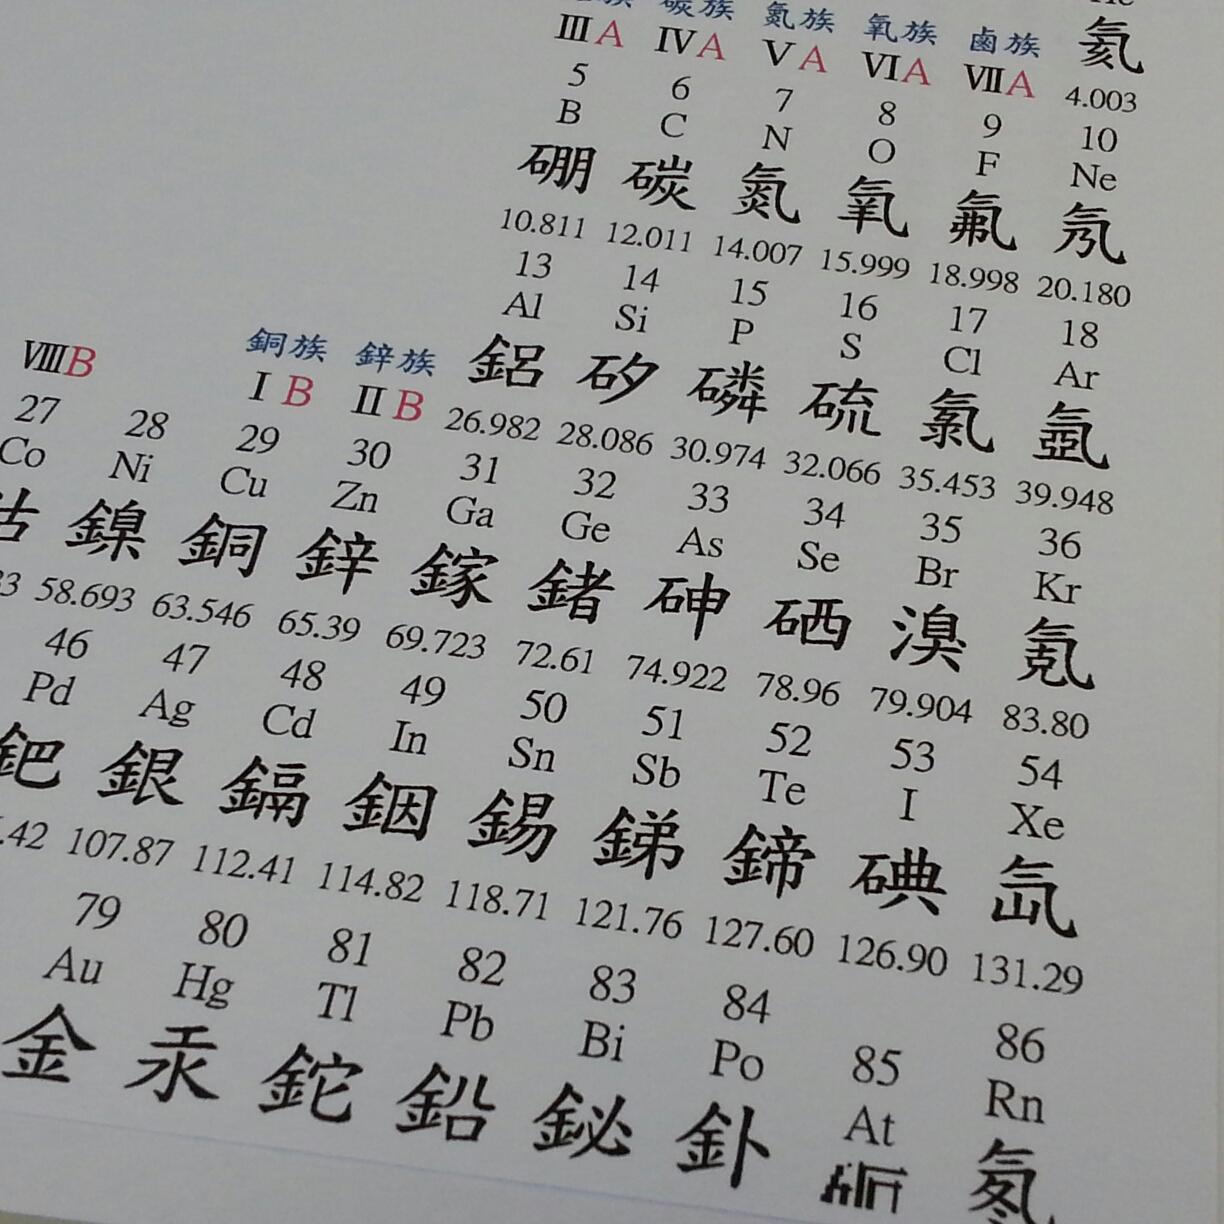 碳族 氮族 氧族 鹵族
ⅢA ⅣA ⅤA ⅥA ⅦA 氦
4.003
5 6 7 8 9 10
B C N O F Ne
硼 碳 氮 氧 氟 氖
10.811 12.011 14.007 15.999 18.998 20.180
13 14 15 16 17 18
Al Si P S Cl Ar
鋁 矽 磷 硫 氯 氬
26.982 28.086 30.974 32.066 35.453 39.948
銅族 鋅族
ⅧB ⅠB ⅡB
27 28 29 30 31 32 33 34 35 36
Co Ni Cu Zn Ga Ge As Se Br Kr
鎳 銅 鋅 鎵 鍺 砷 硒 溴 氪
58.693 63.546 65.39 69.723 72.61 74.922 78.96 79.904 83.80
46 47 48 49 50 51 52 53 54
Pd Ag Cd In Sn Sb Te I Xe
鈀 銀 鎘 銦 錫 銻 鍗 碘 氙
.42 107.87 112.41 114.82 118.71 121.76 127.60 126.90 131.29
79 80 81 82 83 84 85 86
Au Hg Tl Pb Bi Po At Rn
金 汞 鉈 鉛 鉍 釙 氡